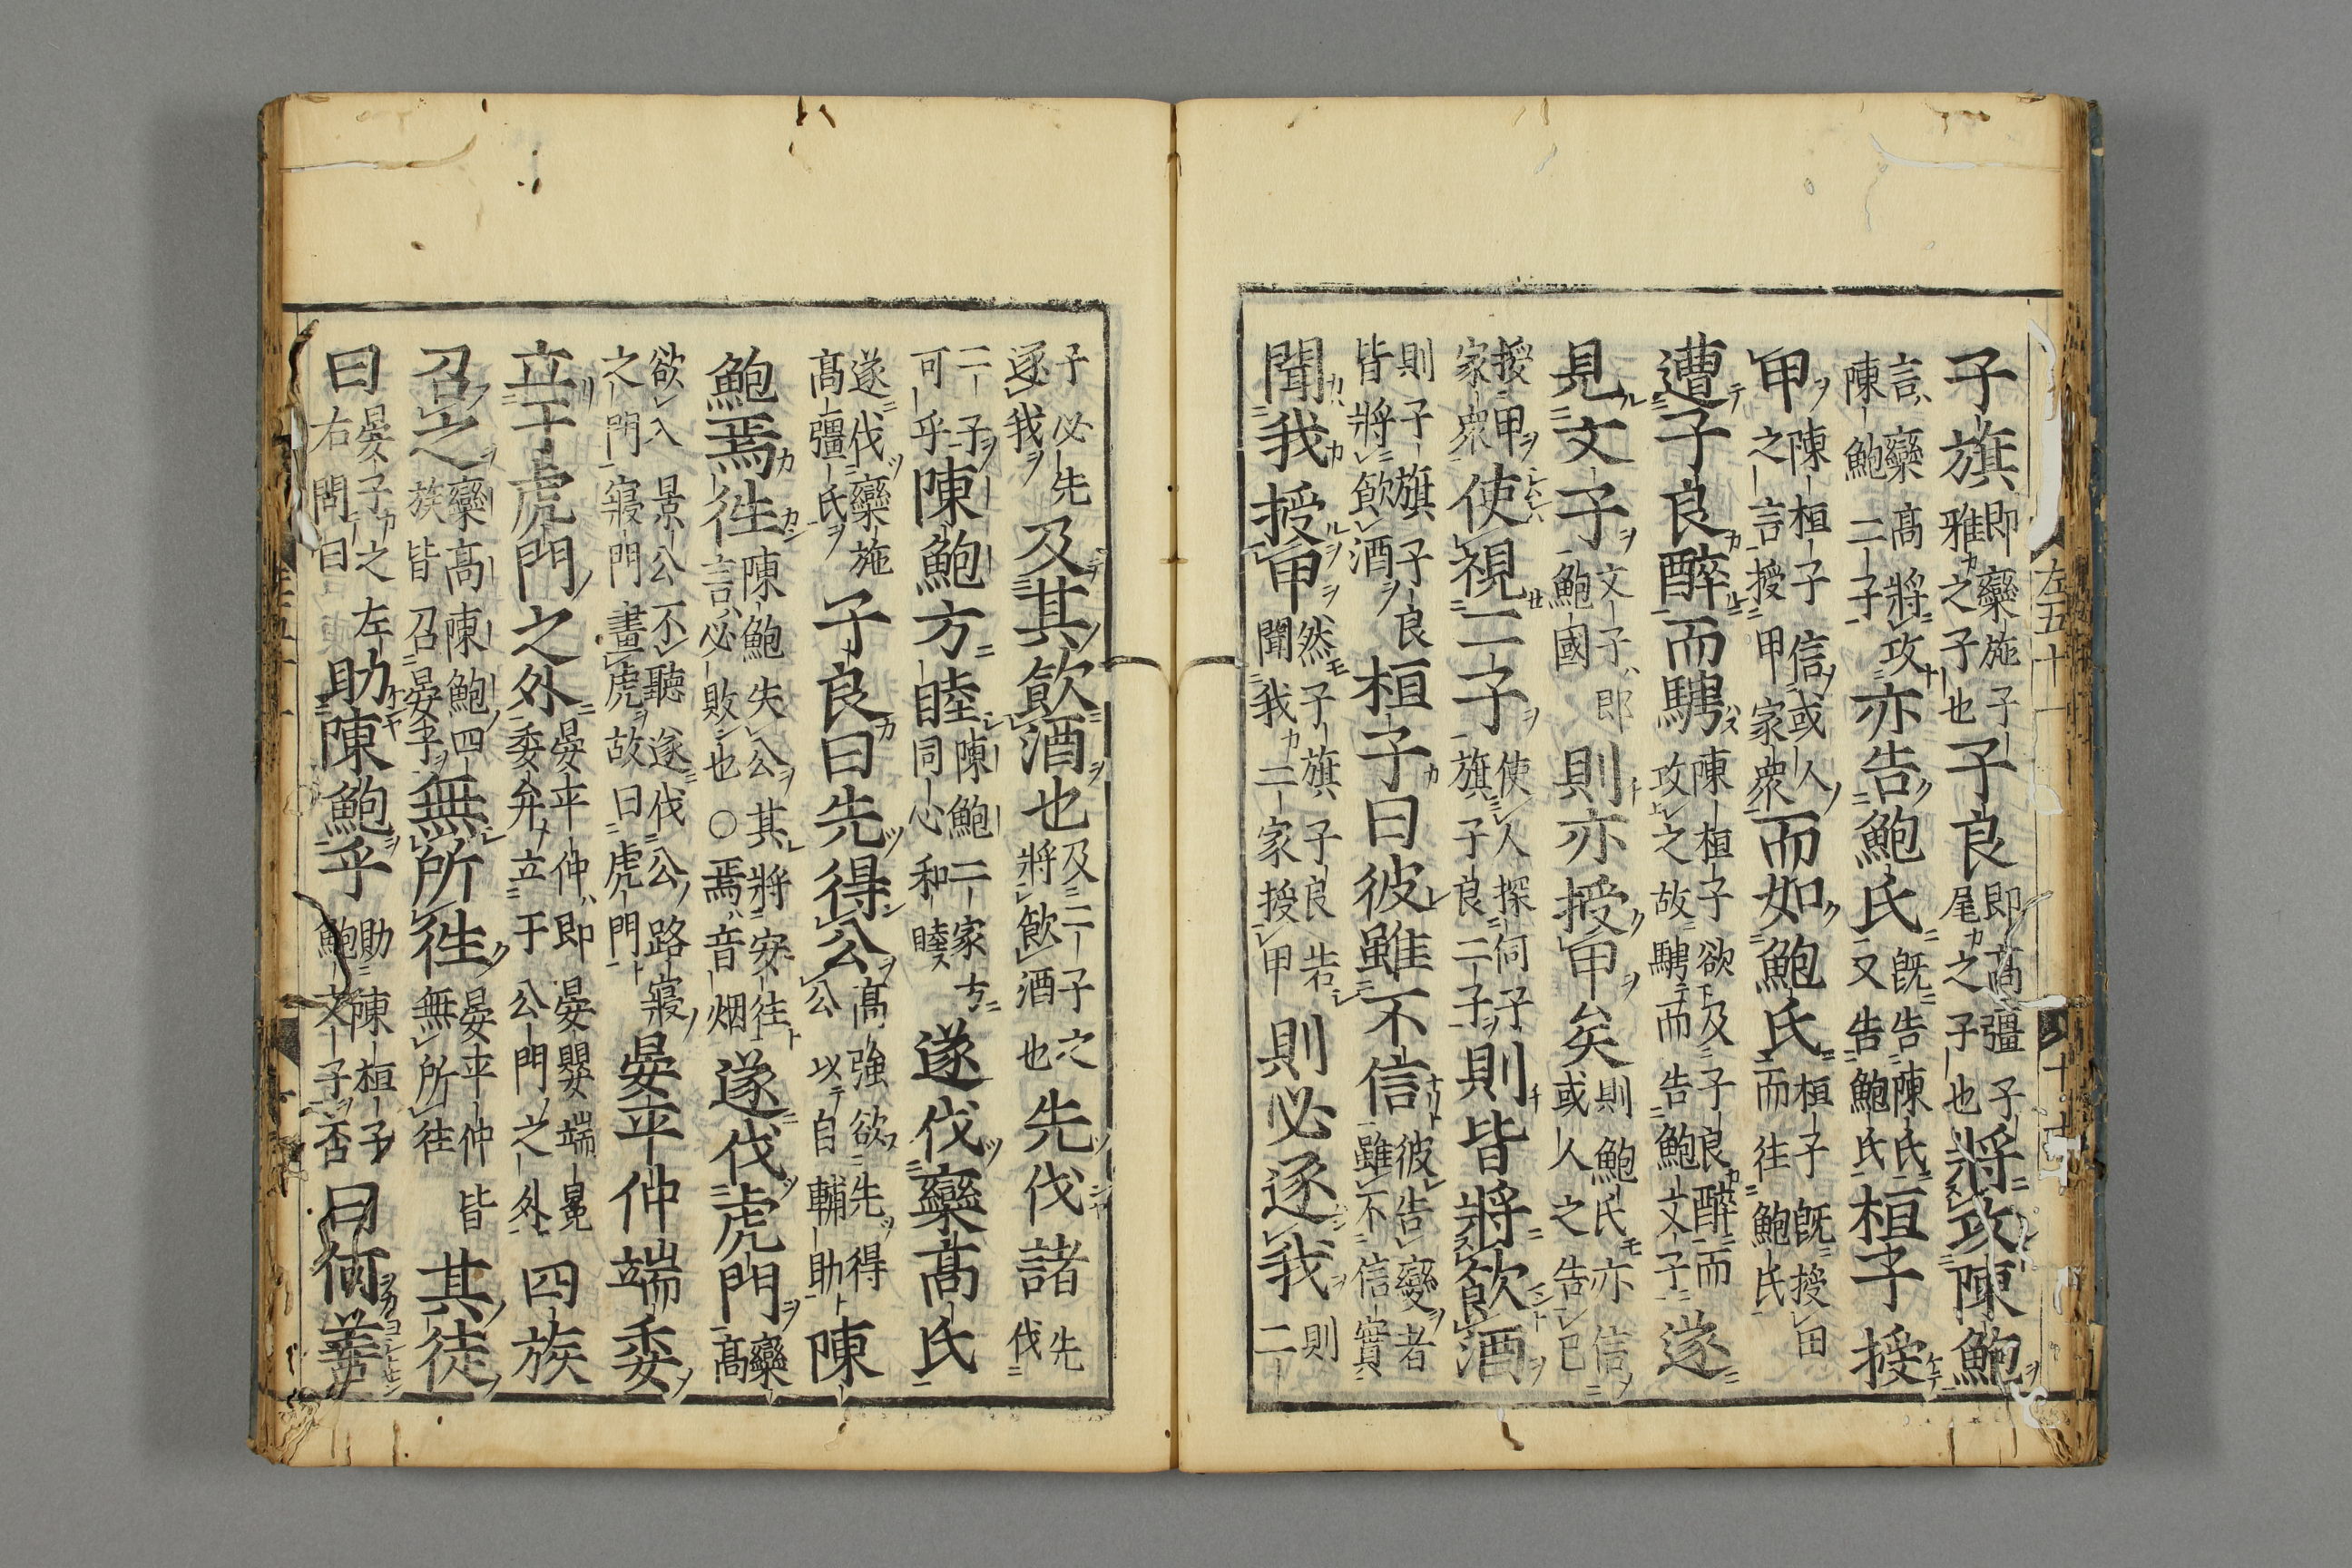 子旗即欒施子雅之子也子良即高彊子尾之子也將攻陳鮑
言欒高將攻陳鮑二子亦告鮑氏既告陳氏又告鮑氏桓子授
甲陳桓子信或人之言授甲家衆而如鮑氏桓子既授甲而往鮑氏
遭子良醉而騁陳桓子欲攻之故騁而告鮑文子及子良醉而遂
見文子文子即鮑國則亦授甲矣則鮑氏亦信或人之告告已
授甲家衆使視二子使人探伺子旗子良二子則皆將飲酒
則子旗子良皆將飲酒桓子曰彼雖不信彼告變者雖不信實
聞我授甲然子旗子良聞我二家授甲告則必逐我則二
子必先逐我及其飲酒也及二子之將飲酒也先伐諸先伐
二子可乎陳鮑方睦陳鮑二家方同心和睦遂伐欒高氏
遂伐欒施高彊氏子良曰先得公高強欲先得公以自輔助陳
鮑焉往陳鮑失公其將安往言必敗也○焉音烟遂伐虎門欒高
欲入景公不聽遂伐公路寢之門寢門畫虎故曰虎門晏平仲端委
立于虎門之外晏平仲即晏嬰端冕委弁立于公門之外四族
召之欒高陳鮑四族皆召晏子無所往晏平仲皆無所往其徒
曰晏子之左右問曰助陳鮑乎助陳桓子鮑文子否曰何善
左五十一